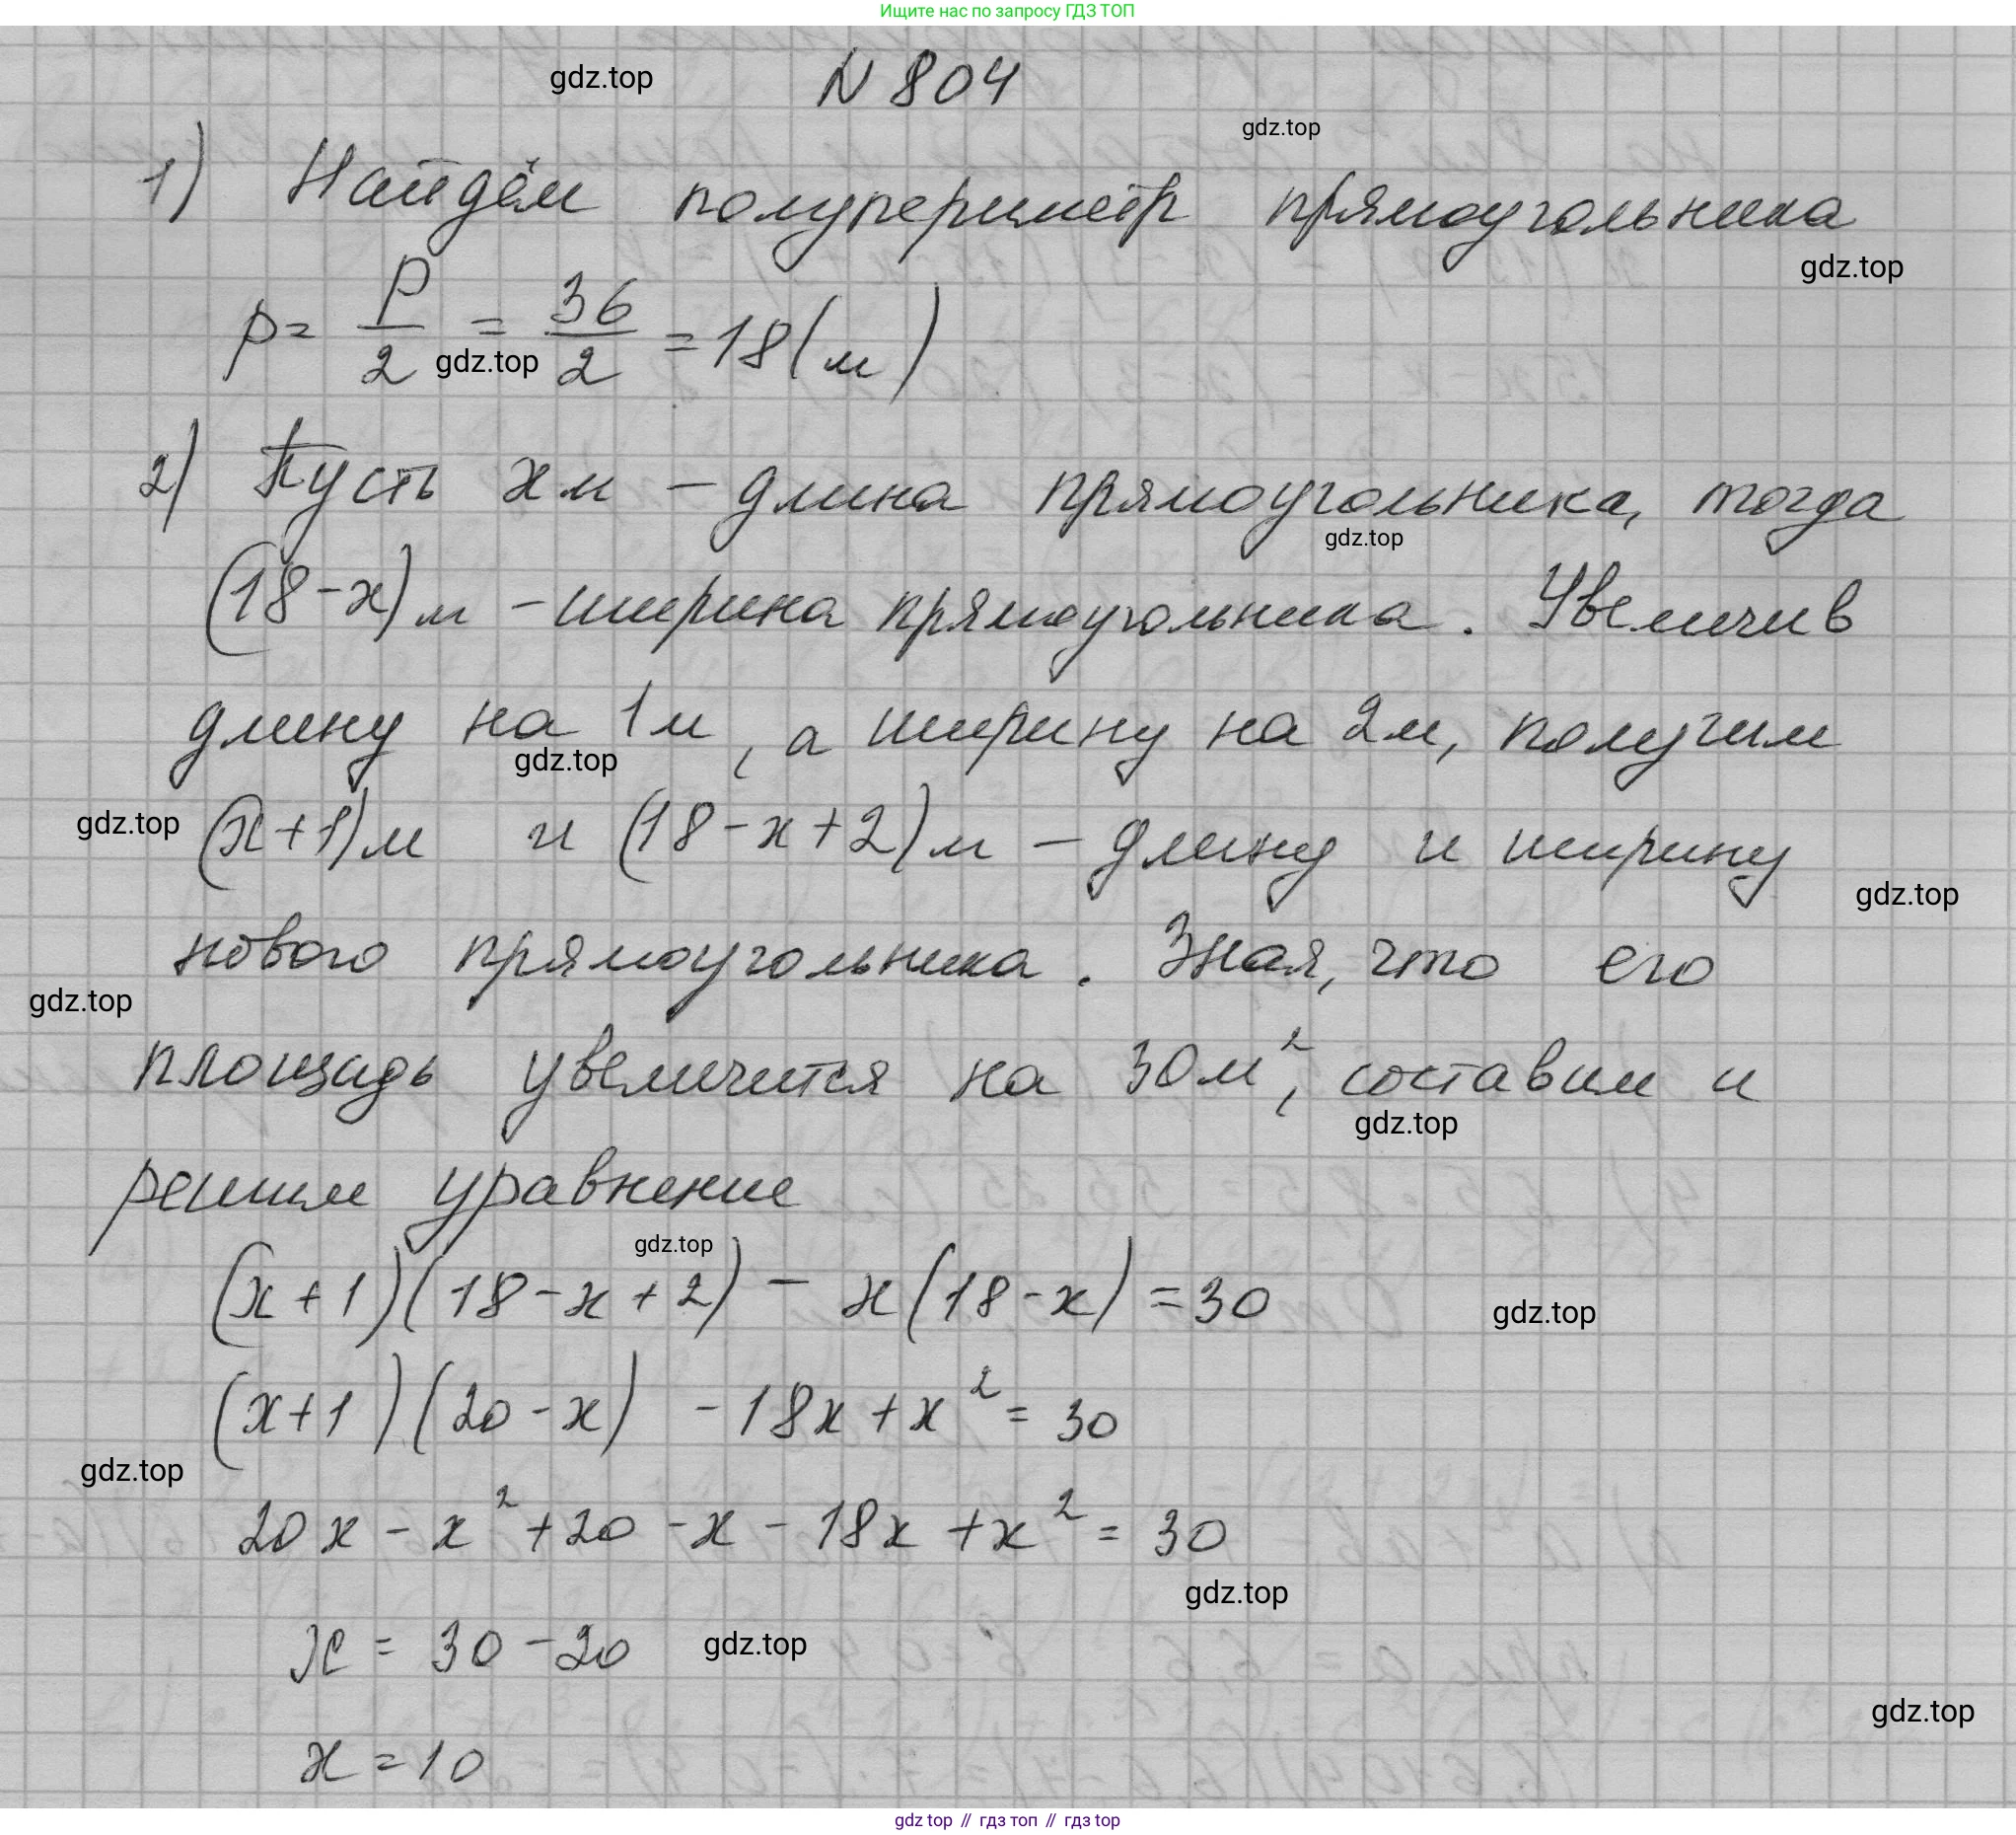 Ищите нас по запросу ГДЗ ТОП
gdz.top
N 804
gdz.top
1) Найдём полупериметр прямоугольника
gdz.top
p = P/2 = 36/2 = 18 (м)
gdz.top
2) Пусть x м - длина прямоугольника, тогда
gdz.top
(18 - x) м - ширина прямоугольника. Увеличив
длину на 1 м, а ширину на 2 м, получим
gdz.top
gdz.top
(x + 1) м и (18 - x + 2) м - длину и ширину
gdz.top
нового прямоугольника. Зная, что его
gdz.top
площадь увеличится на 30 м², составим и
gdz.top
решим уравнение
gdz.top
(x + 1)(18 - x + 2) - x(18 - x) = 30
gdz.top
(x + 1)(20 - x) - 18x + x² = 30
gdz.top
20x - x² + 20 - x - 18x + x² = 30
gdz.top
x = 30 - 20
gdz.top
gdz.top
x = 10
gdz top // гдз топ // гдз top